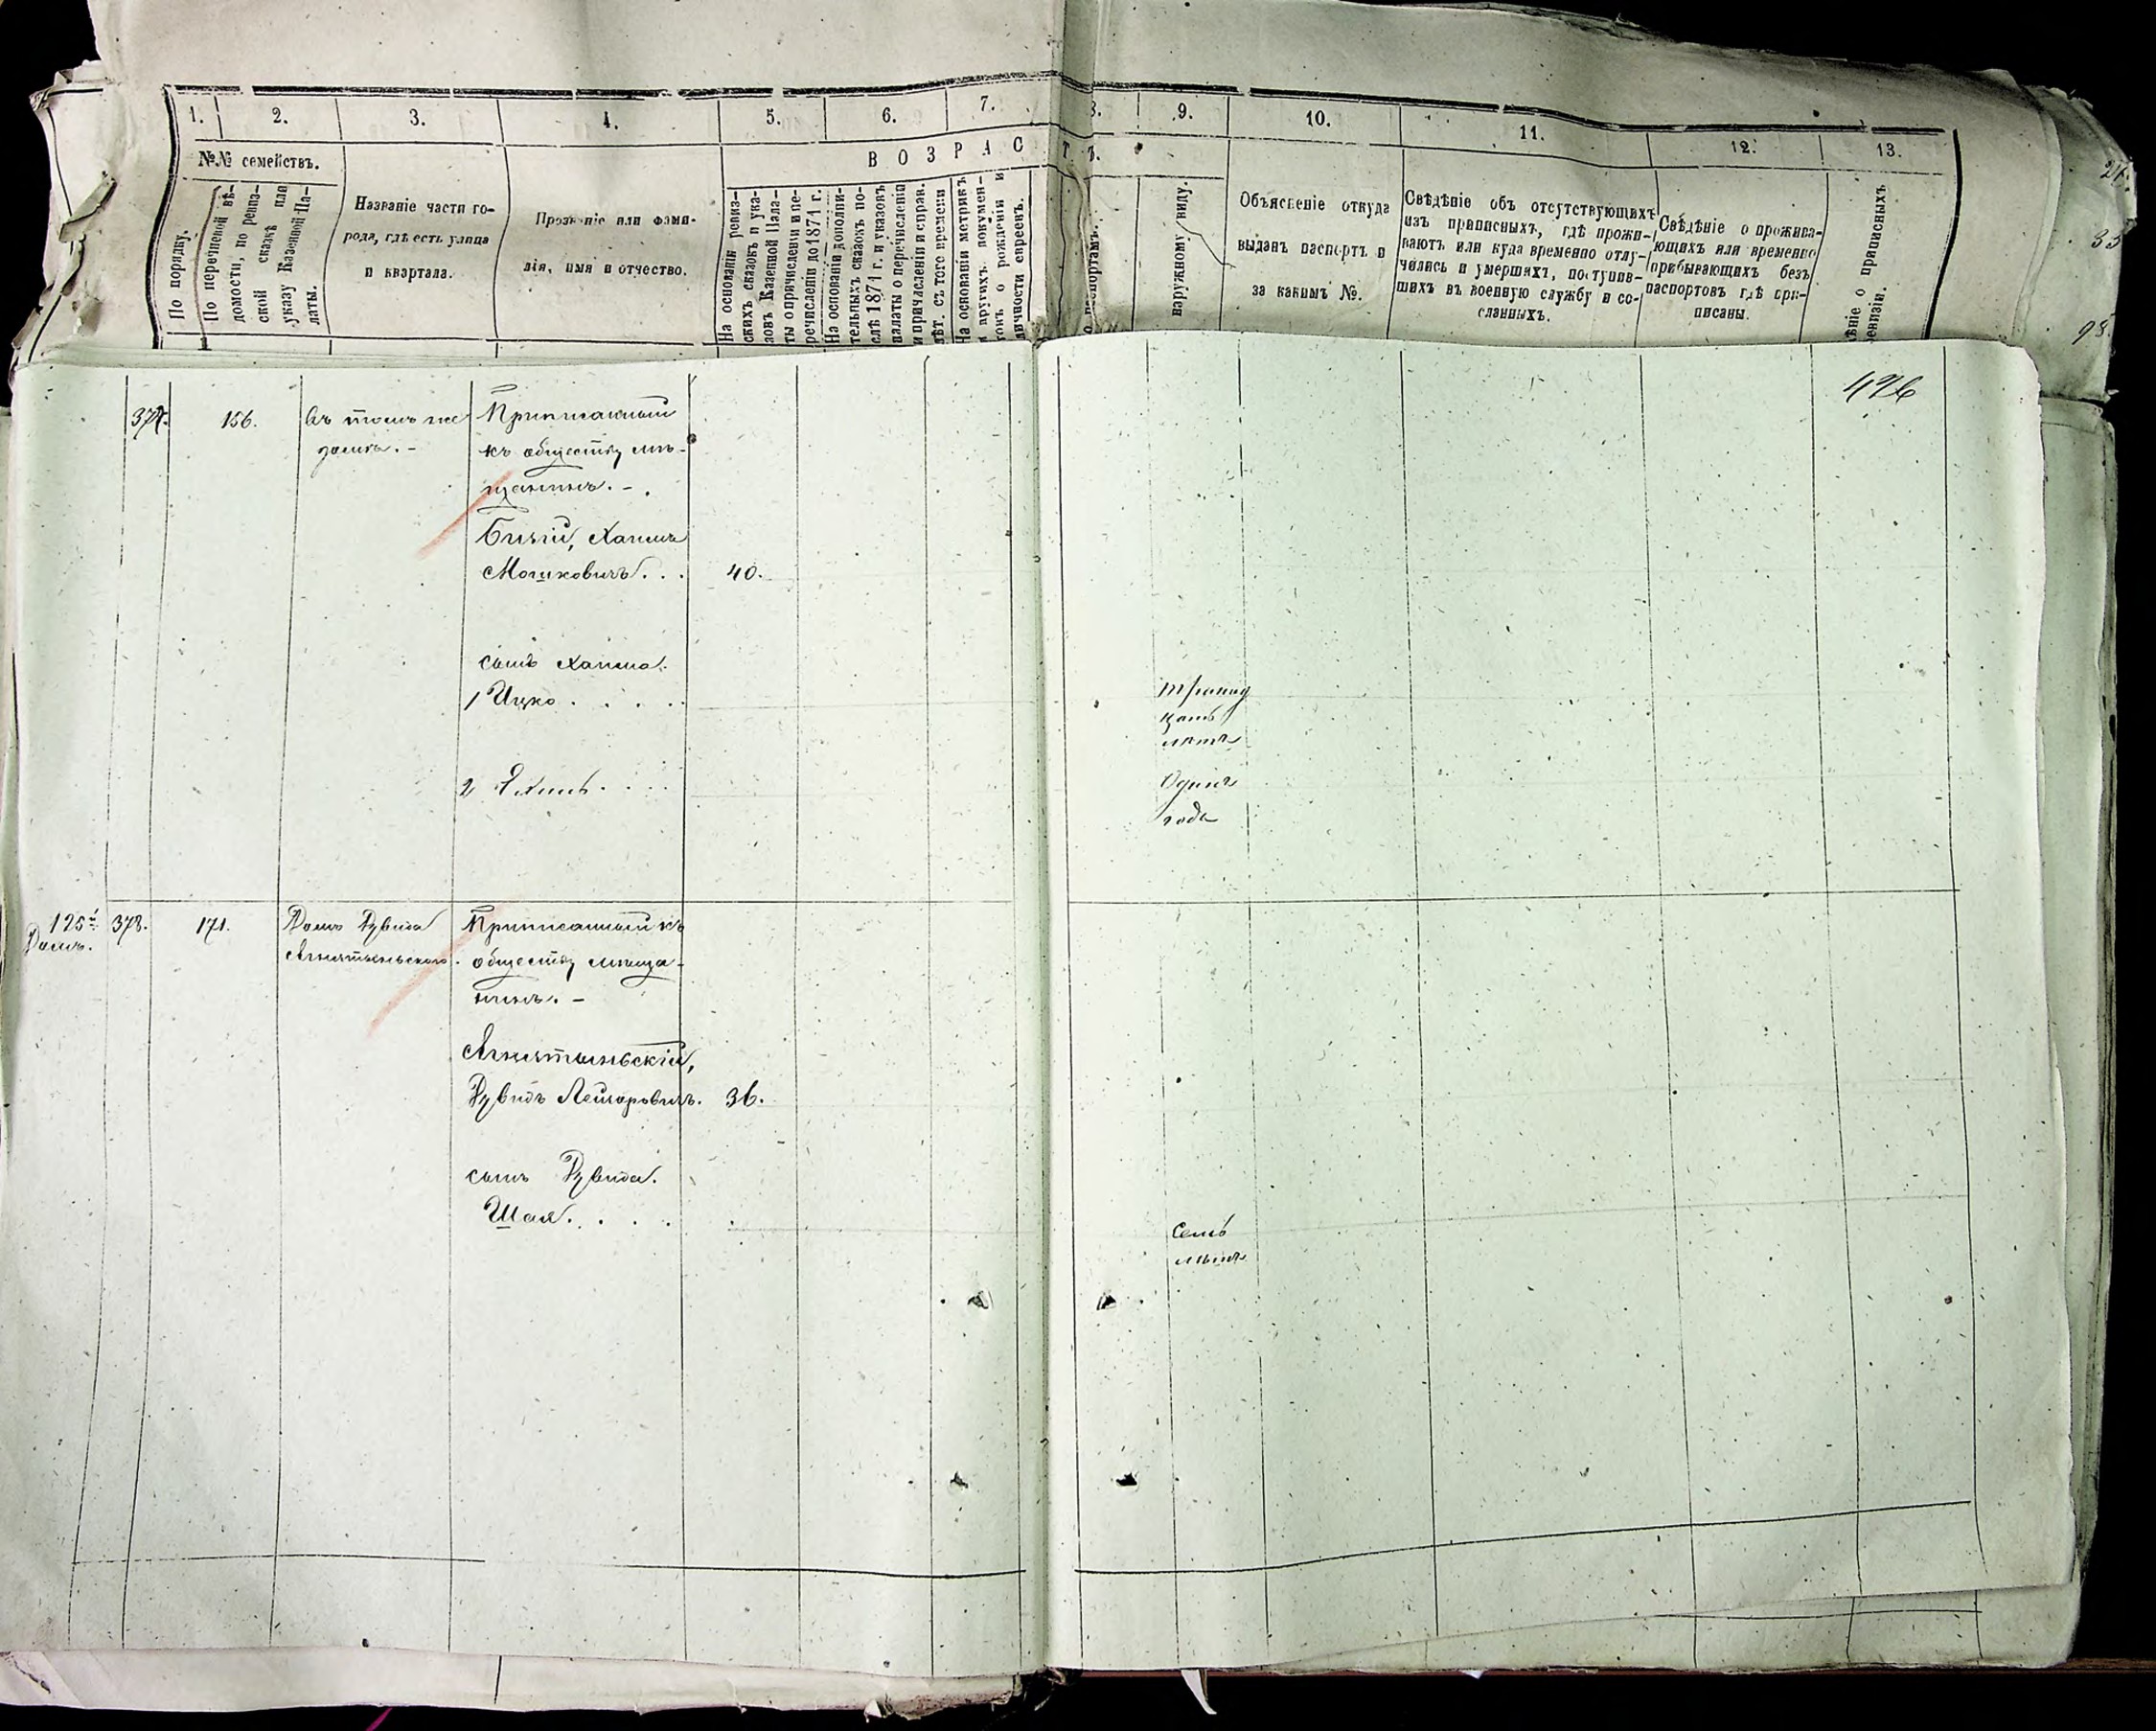 1. 2. 3. 4. 5. 6. 7. 8. 9. 10. 11. 12. 13.
№№ семействъ.
В О З Р А С Т Ъ.
По порядку.
По перечневой вѣ-
домости, по ревиз-
ской сказкѣ или
указу Казенной Па-
латы.
Названіе части го-
рода, гдѣ есть улица
и квартала.
Прозваніе или фами-
лія, имя и отчество.
На основаніи ревиз-
скихъ сказокъ и ука-
зовъ Казенной Пала-
ты о причисленіи и пе-
речисленіи до 1871 г.
На основаніи дополни-
тельныхъ сказокъ по-
слѣ 1871 г. и указовъ
палаты о перечисленіи
и причисленіи и справ.
лѣт. съ того времени
На основаніи метрикъ
и другихъ докумен-
токъ о рожденіи и
личности евреевъ.
о паспортамъ.
наружному виду.
Объясненіе откуда
выданъ паспортъ и
за какимъ №.
Свѣдѣніе объ отсутствующихъ
изъ приписныхъ, гдѣ прожи-
ваютъ или куда временно отлу-
чились и умершихъ, поступив-
шихъ въ военную службу и со-
сланныхъ.
Свѣдѣніе о прожива-
ющихъ или временно
прибывающихъ безъ
паспортовъ гдѣ при-
писаны.
ѣніе о приписныхъ
ревизіи.
426
377. 156. Въ томъ же
домѣ. -
Приписанный
къ обществу мѣ-
щанинъ. -
Хаимъ
Мошковичъ . . . 40.
сынъ Хаима.
1 Ицко . . . . . тринад
цать
лѣтъ
2 . . . . Одинъ
годъ
125й
Домъ.
378. 171. Домъ Дувида
Приписанный къ
обществу мѣща-
нинъ. -
Дувидъ Лейзаровичъ. 36.
сынъ Дувида.
Шая . . . . .
Семь
лѣтъ